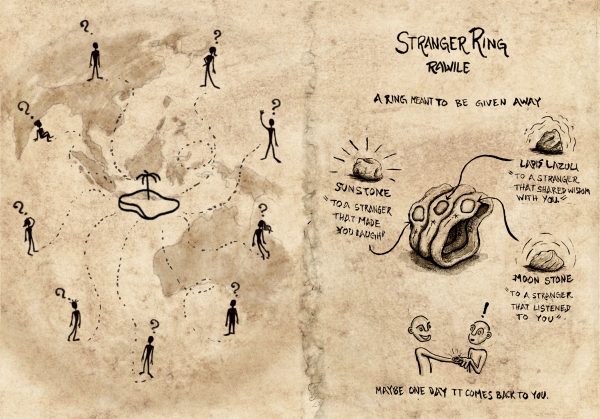 ? ?
? ?
? ?
? ?
?
STRANGER RING
RAWILE
A RING MEANT TO BE GIVEN AWAY
SUNSTONE
"TO A STRANGER
THAT MADE
YOU LAUGH"
LAPIS LAZULI
"TO A STRANGER
THAT SHARED WISDOM
WITH YOU"
MOON STONE
"TO A STRANGER
THAT LISTENED
TO YOU".
!
MAYBE ONE DAY IT COMES BACK TO YOU.